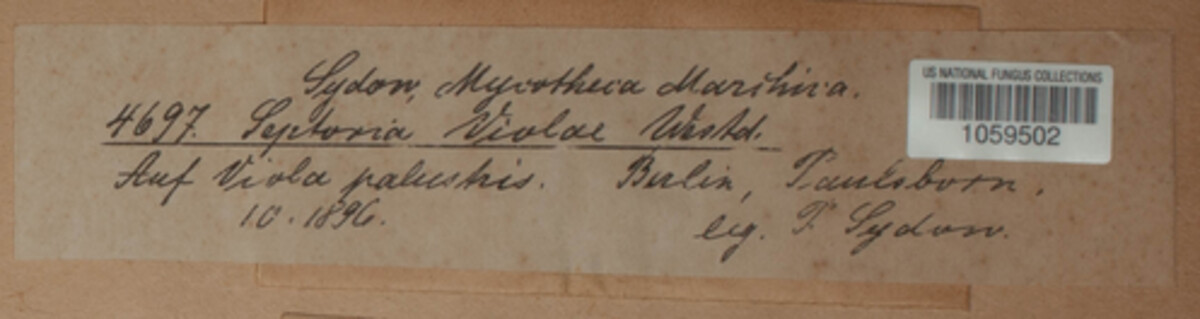 Sydow, Mycotheca Marchica.
4697. Septoria Violae Westd.
Auf Viola palustris. Berlin, Paulsborn.
10. 1896.
leg. P. Sydow.
US NATIONAL FUNGUS COLLECTIONS
1059502